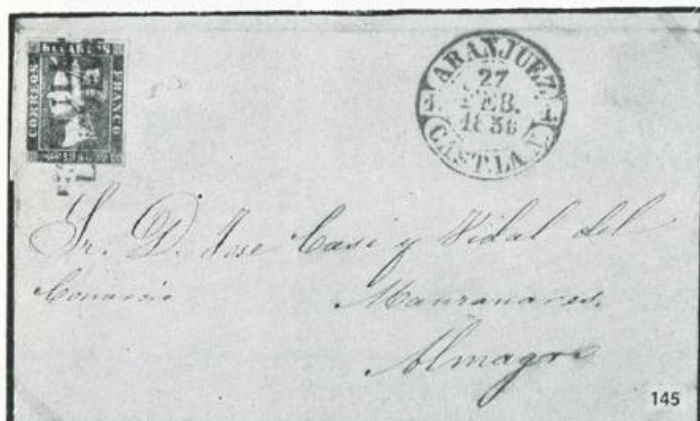 CORREOS
FRANCO
ARANJUEZ.
27
FEB.
CAST.LA N.
Sr. D. Jose Casi y Vidal del
Comercio Manzanares,
Almagro
145